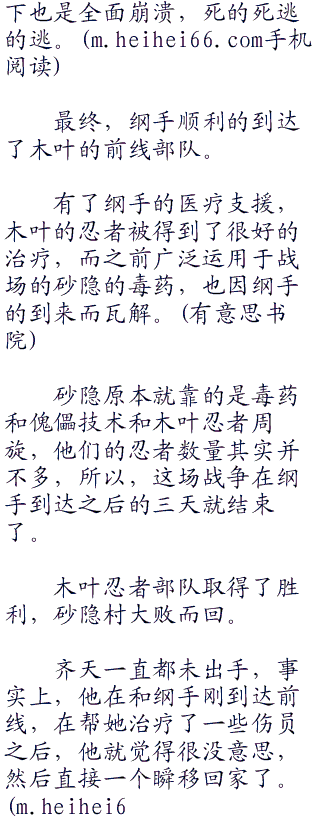 下也是全面崩溃，死的死逃
的逃。(m.heihei66.com手机
阅读)
最终，纲手顺利的到达
了木叶的前线部队。
有了纲手的医疗支援，
木叶的忍者被得到了很好的
治疗，而之前广泛运用于战
场的砂隐的毒药，也因纲手
的到来而瓦解。(有意思书
院)
砂隐原本就靠的是毒药
和傀儡技术和木叶忍者周
旋，他们的忍者数量其实并
不多，所以，这场战争在纲
手到达之后的三天就结束
了。
木叶忍者部队取得了胜
利，砂隐村大败而回。
齐天一直都未出手，事
实上，他在和纲手刚到达前
线，在帮她治疗了一些伤员
之后，他就觉得很没意思，
然后直接一个瞬移回家了。
(m.heihei6